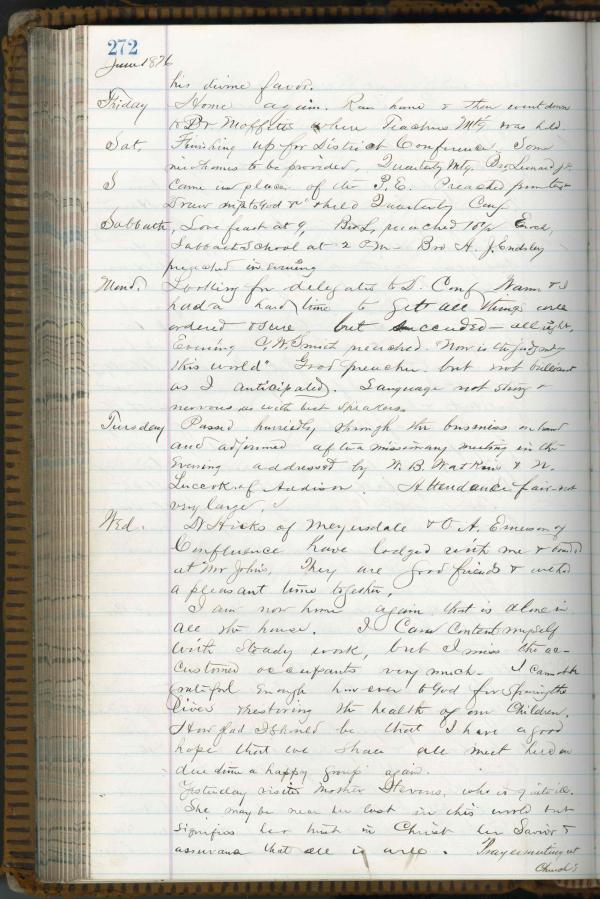 272
June 1876
his divine favor.
Friday Home again. Ran home & then went down
to Dr Moffitts where Teachers Mtg was held.
Sat. Finishing up for District Conference. Some
new homes to be provided. Quarterly Mtg. Bro Leonard Jr
S came in place of the P.E. Preached from text
Draw nigh to God & held Quarterly Conf
Sabbath, Love feast at 9, Bro L, preached 10½
Sabbath School at 2 P.M. Bro H. J. Endsley
preached in evening
Mond. Looking for delegates to D. Conf
had a hard time to get all things well
ordered & sure but succeeded - all right.
Evening C. W. Smith preached. "Now is the judg
this world" Good preacher but not brilliant
as I anticipated. Language not strong &
nervous as with best speakers.
Tuesday Passed hurriedly through the business on hand
and adjourned after a missionary meeting in the
Evening addressed by W. B. Watkins & W.
Luccock of Addison. Attendance fair - not
very large.
Wed. Dr Hicks of Meyersdale & A. Emerson of
Confluence have lodged with me &
at Mr Johns, They are good friends &
a pleasant time together.
I am now home again that is alone in
all the house. I can content myself
with steady work, but I miss the ac-
customed occupants very much. I cannot be
grateful enough however to God for sparing the
lives & restoring the health of our Children.
How glad I should be that I have a good
hope that we shall all meet
due time a happy group again.
Yesterday visited Mother Stevens, who is quite ill.
She may be near her last in this world but
signifies her trust in Christ her Savior &
assurance that all is well. Prayer meeting at
Church